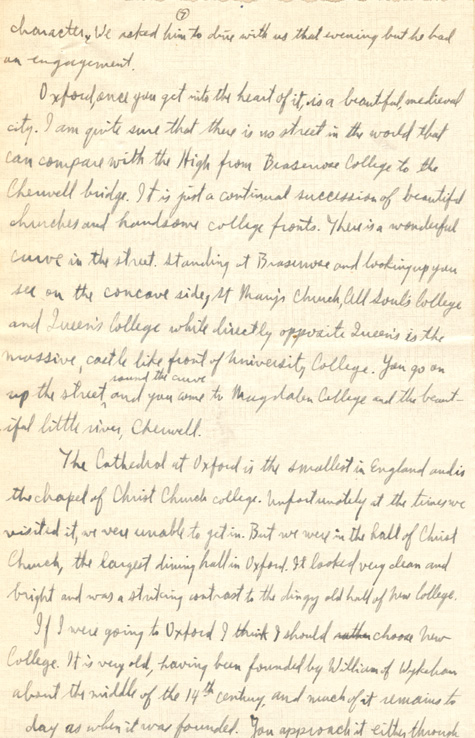 7
character. We asked him to dine with us that evening but he had
an engagement.
Oxford, once you get into the heart of it, is a beautiful, medieval
city. I am quite sure that there is no street in the world that
can compare with the High from Brasenose College to the
Cherwell bridge. It is just a continual succession of beautiful
churches and handsome college fronts. There is a wonderful
curve in the street. Standing at Brasenose and looking up you
see on the concave side, St Mary's Church, All Soul's College
and Queen's College while directly opposite Queen's is the
massive, castle like front of University College. You go on
round the curve
up the street, and you come to Magdalen College and the beaut-
iful little river, Cherwell.
The Cathedral at Oxford is the smallest in England and is
the chapel of Christ Church college. Unfortunately at the time we
visited it, we were unable to get in. But we were in the hall of Christ
Church, the largest dining hall in Oxford. It looked very clean and
bright and was a striking contrast to the dingy old hall of New College.
If I were going to Oxford I think I should rather choose New
College. It is very old, having been founded by William of Wykeham
about the middle of the 14th century, and much of it remains to
day as when it was founded. You approach it either through